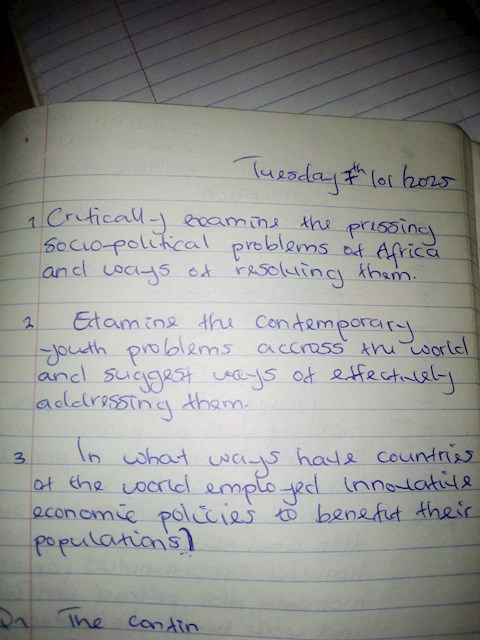 Tuesday 7th/01/2025
1 Critically examine the pressing
socio-political problems of Africa
and ways of resolving them.
2 Examine the contemporary
youth problems accross the world
and suggest ways of effectively
addressing them.
3 In what ways have countries
of the world employed innovative
economic policies to benefit their
populations)
Qn The contin